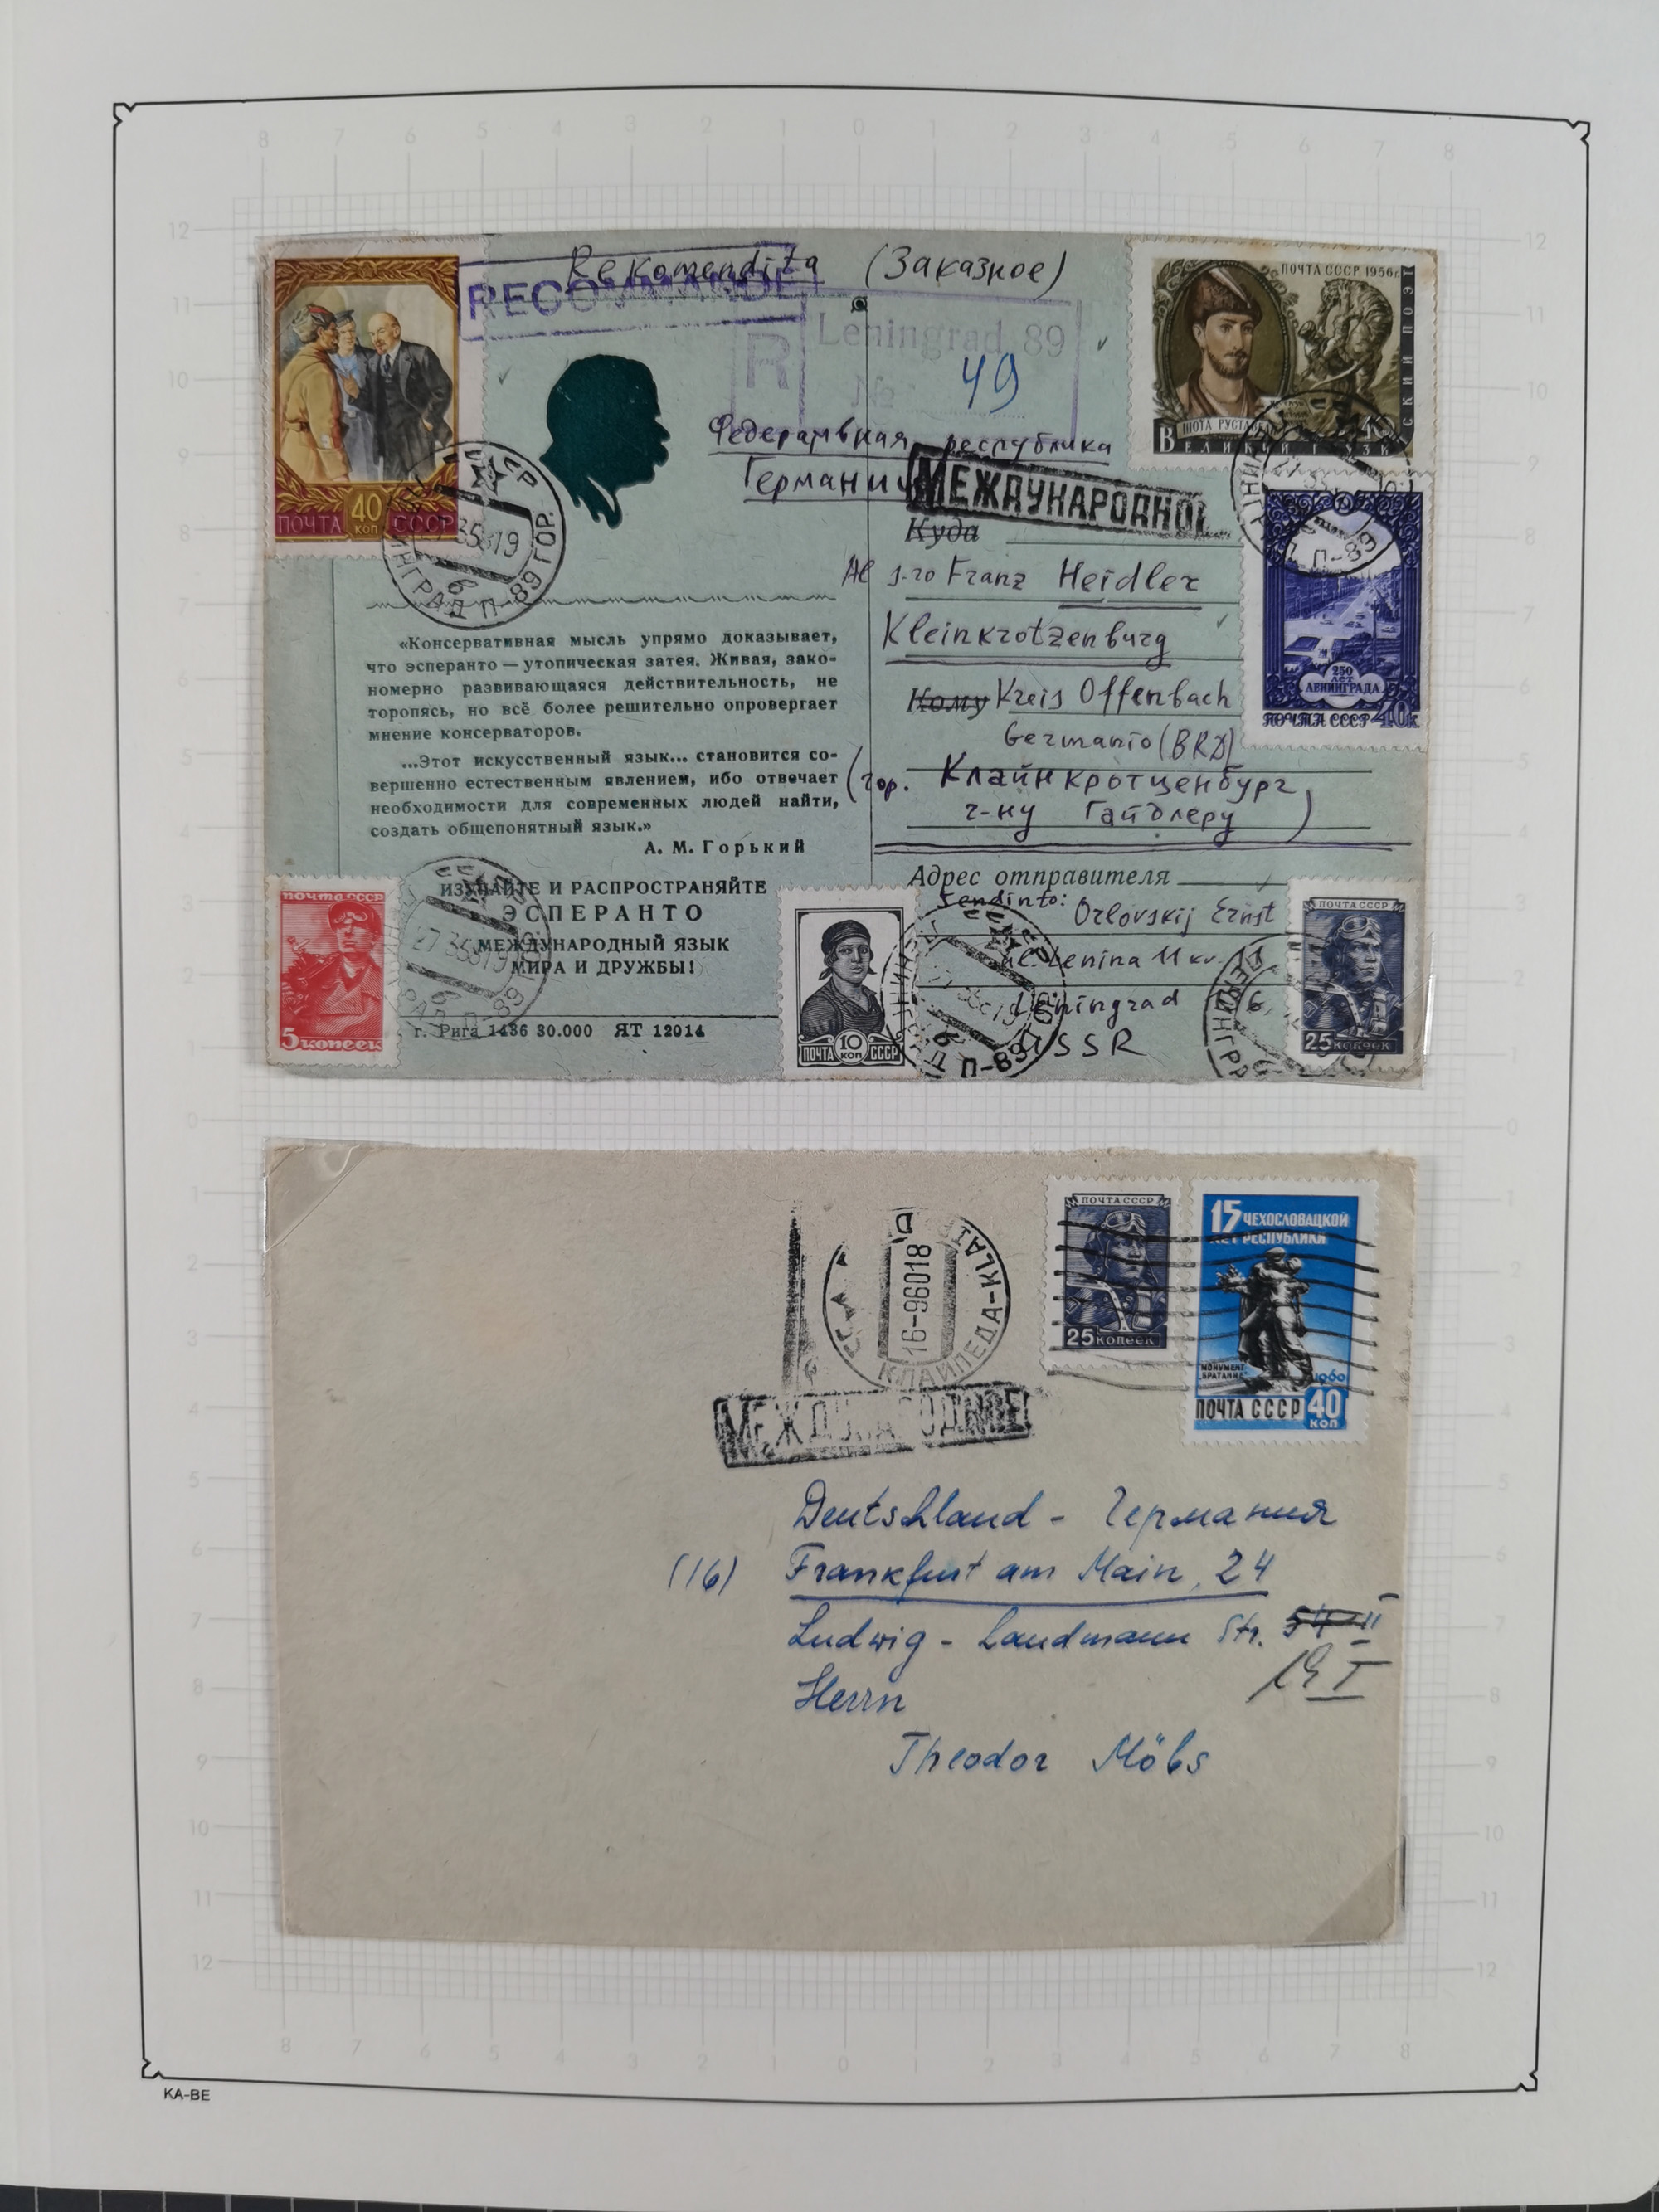 Rekomendita (Заказное)
RECOMMANDÉ
R
Leningrad 89
№ 49
ПОЧТА 40 КОП СССР
ПОЧТА СССР 1956г.
ШОТА РУСТАВЕЛИ
ВЕЛИКИЙ ГРУЗИНСКИЙ ПОЭТ
40К
Федеративная республика
Германии
МЕЖДУНАРОДНОЕ
Куда
Al s-ro Franz Heidler
Kleinkrotzenburg
Кому Kreis Offenbach
Germanio (BRD)
(гор. Клайнкротценбург,
г-ну Гайдлеру)
250
ЛЕТ
ЛЕНИНГРАДА
ПОЧТА СССР 40к.
«Консервативная мысль упрямо доказывает,
что эсперанто — утопическая затея. Живая, зако-
номерно развивающаяся действительность, не
торопясь, но всё более решительно опровергает
мнение консерваторов.
...Этот искусственный язык... становится со-
вершенно естественным явлением, ибо отвечает
необходимости для современных людей найти,
создать общепонятный язык.»
А. М. Горький
ИЗУЧАЙТЕ И РАСПРОСТРАНЯЙТЕ
ЭСПЕРАНТО
МЕЖДУНАРОДНЫЙ ЯЗЫК
МИРА И ДРУЖБЫ!
г. Рига 1436 30.000 ЯТ 12014
ПОЧТА СССР
5 копеек
ПОЧТА 10 КОП СССР
Адрес отправителя
Sendinto: Orlovskij Ernst
ul. Lenina 11 kv.
Leningrad
USSR
ПОЧТА СССР
25 копеек
ЛЕНИНГРАД П-89 ГОР.
16-96018
КЛАЙПЕДА-KLAI
МЕЖДУНАРОДНОЕ
ПОЧТА СССР
25 копеек
15 ЧЕХОСЛОВАЦКОЙ
ЛЕТ РЕСПУБЛИКИ
МОНУМЕНТ
"БРАТАНИЕ"
1960
ПОЧТА СССР 40
КОП
Deutschland - Германия
(16) Frankfurt am Main, 24
Ludwig - Landmann Str. 54 II
19 I
Herrn
Theodor Möbs
KA-BE